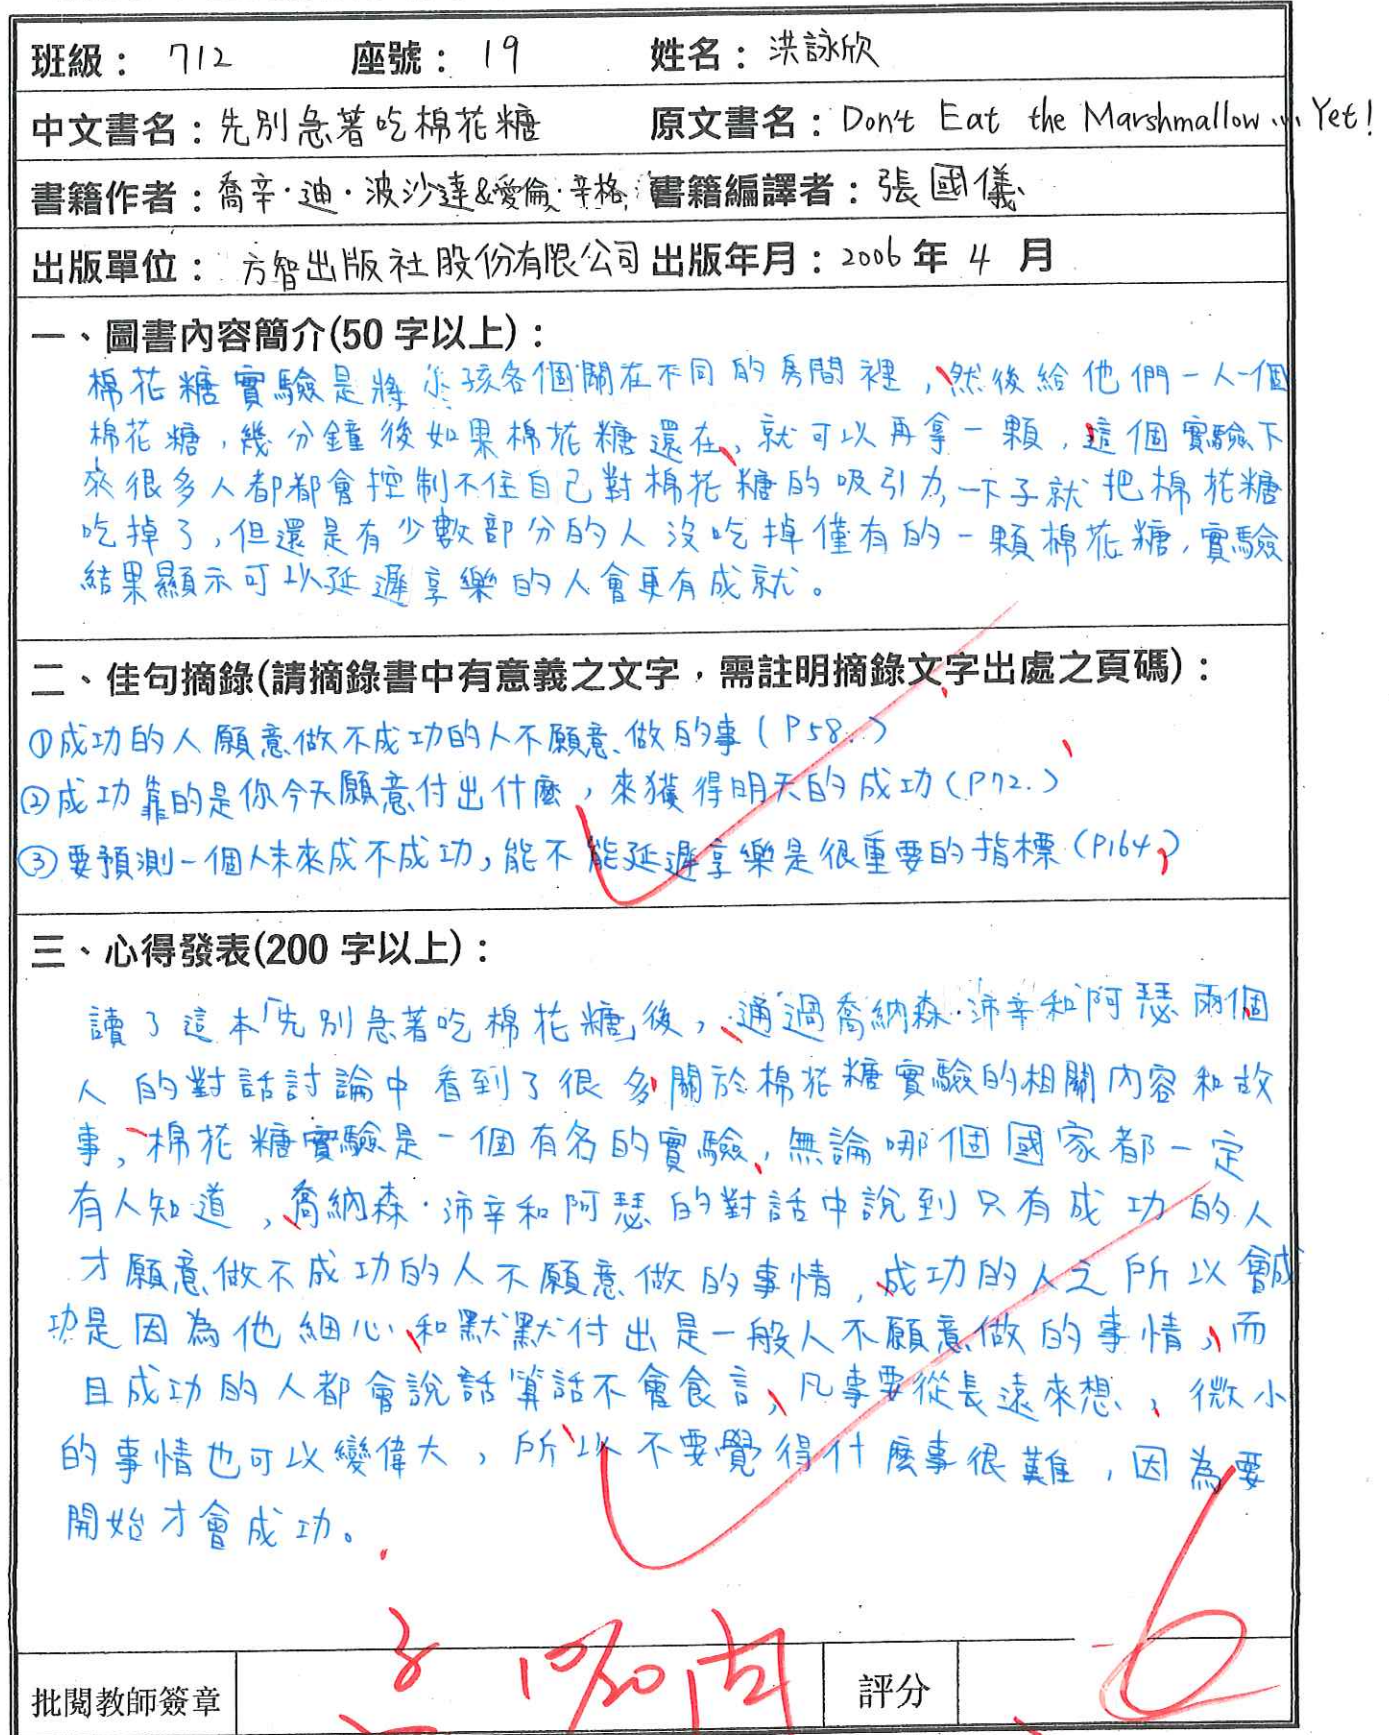 班級： 712 座號： 19 姓名： 洪詠欣
中文書名：先別急著吃棉花糖 原文書名：Don't Eat the Marshmallow... Yet!
書籍作者：喬辛·迪·波沙達&愛倫·辛格 書籍編譯者：張國儀
出版單位： 方智出版社股份有限公司 出版年月：2006年 4 月
一、圖書內容簡介(50 字以上)：
棉花糖實驗是將小孩各個關在不同的房間裡，然後給他們一人一個
棉花糖，幾分鐘後如果棉花糖還在，就可以再拿一顆，這個實驗下
來很多人都都會控制不住自己對棉花糖的吸引力，一下子就把棉花糖
吃掉了，但還是有少數部分的人沒吃掉僅有的一顆棉花糖，實驗
結果顯示可以延遲享樂的人會更有成就。
二、佳句摘錄(請摘錄書中有意義之文字，需註明摘錄文字出處之頁碼)：
①成功的人願意做不成功的人不願意做的事(P58.)
②成功靠的是你今天願意付出什麼，來獲得明天的成功(P72.)
③要預測一個人未來成不成功，能不能延遲享樂是很重要的指標(P164)
三、心得發表(200 字以上)：
讀了這本「先別急著吃棉花糖」後，通過喬納森·沛辛和阿瑟兩個
人的對話討論中看到了很多關於棉花糖實驗的相關內容和故
事，棉花糖實驗是一個有名的實驗，無論哪個國家都一定
有人知道，喬納森·沛辛和阿瑟的對話中說到只有成功的人
才願意做不成功的人不願意做的事情，成功的人之所以會成
功是因為他細心和默默付出是一般人不願意做的事情，而
且成功的人都會說話算話不會食言，凡事要從長遠來想，微小
的事情也可以變偉大，所以不要覺得什麼事很難，因為要
開始才會成功。
批閱教師簽章 10/20 評分